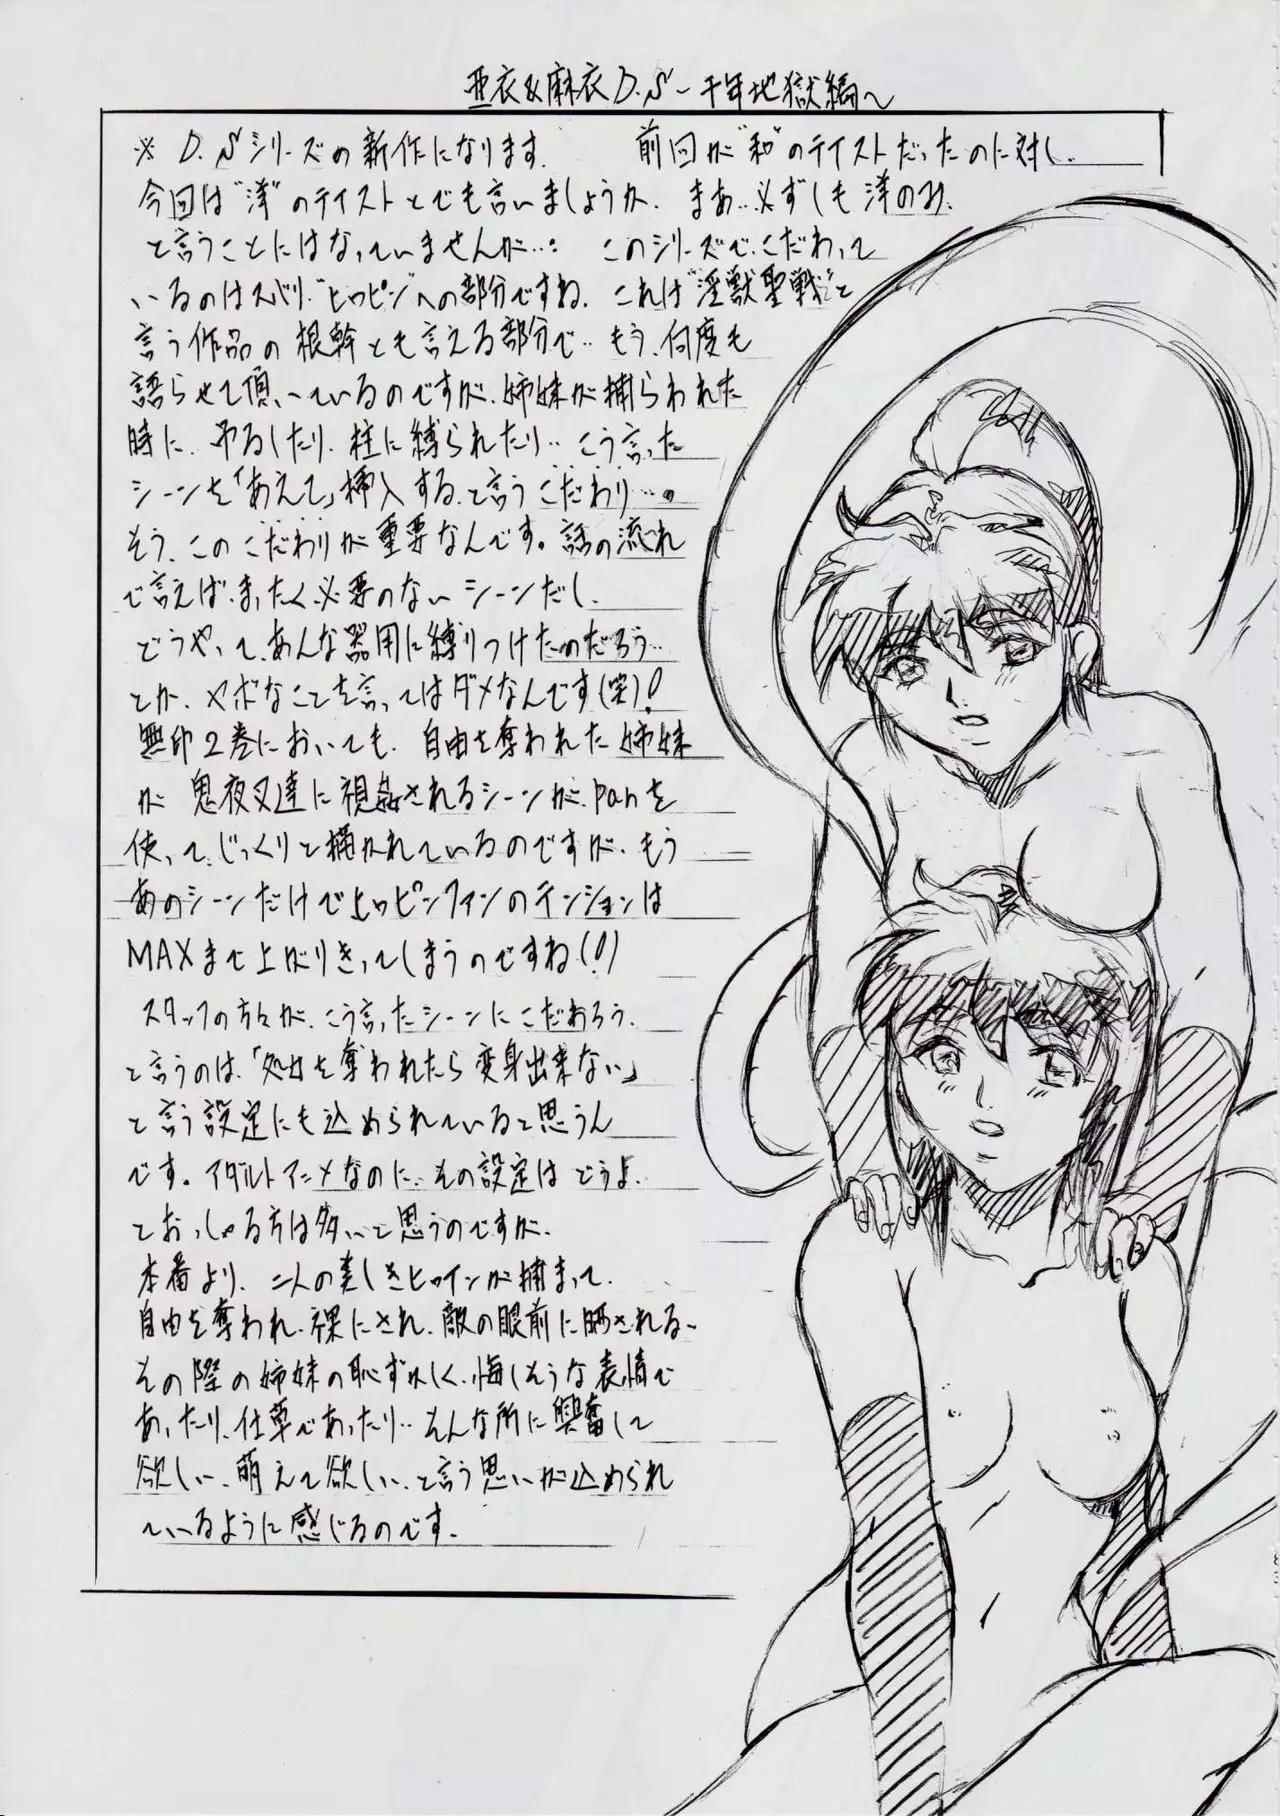 亜衣&麻衣D.S～千年地獄編～
※ D.Sシリーズの新作になります. 前回が"和"のテイストだったのに対し.
今回は"洋"のテイストとでも言いましょうか. まあ‥必ずしも洋のみ.
と言うことにはなっていませんが…： このシリーズで.こだわって
いるのはズバリ."ヒロピン"への部分ですね. これは"淫獣聖戦"と
言う作品の根幹とも言える部分で‥もう.何度も
語らせて頂いているのですが.姉妹が捕らわれた
時に. 吊るしたり.柱に縛られたり‥こう言った
シーンを「あえて」挿入する.と言うこだわり…。
そう.このこだわりが重要なんです。話の流れ
で言えば.まったく必要のないシーンだし.
どうやって.あんな器用に縛りつけたのだろう‥
とか.ヤボなことを言ってはダメなんです(笑)!
無印2巻においても.自由を奪われた姉妹
が 鬼夜叉達に視姦されるシーンが.panを
使って.じっくりと描かれているのですが.もう
あのシーンだけでヒロピンファンのテンションは
MAXまで上がりきってしまうのですね(!)
スタッフの方々が.こう言ったシーンにこだわろう.
と言うのは.「処女を奪われたら変身出来ない」
と言う設定にも込められていると思うん
です。アダルトアニメなのに.その設定はどうよ.
とおっしゃる方は多いと思うのですが.
本番より.二人の美しきヒロインが捕まって.
自由を奪われ.裸にされ.敵の眼前に晒される-
その際の姉妹の恥ずかしく.悔しそうな表情で
あったり.仕草であったり‥そんな所に興奮して
欲しい.萌えて欲しい.と言う思いが込められ
ているように感じるのです.